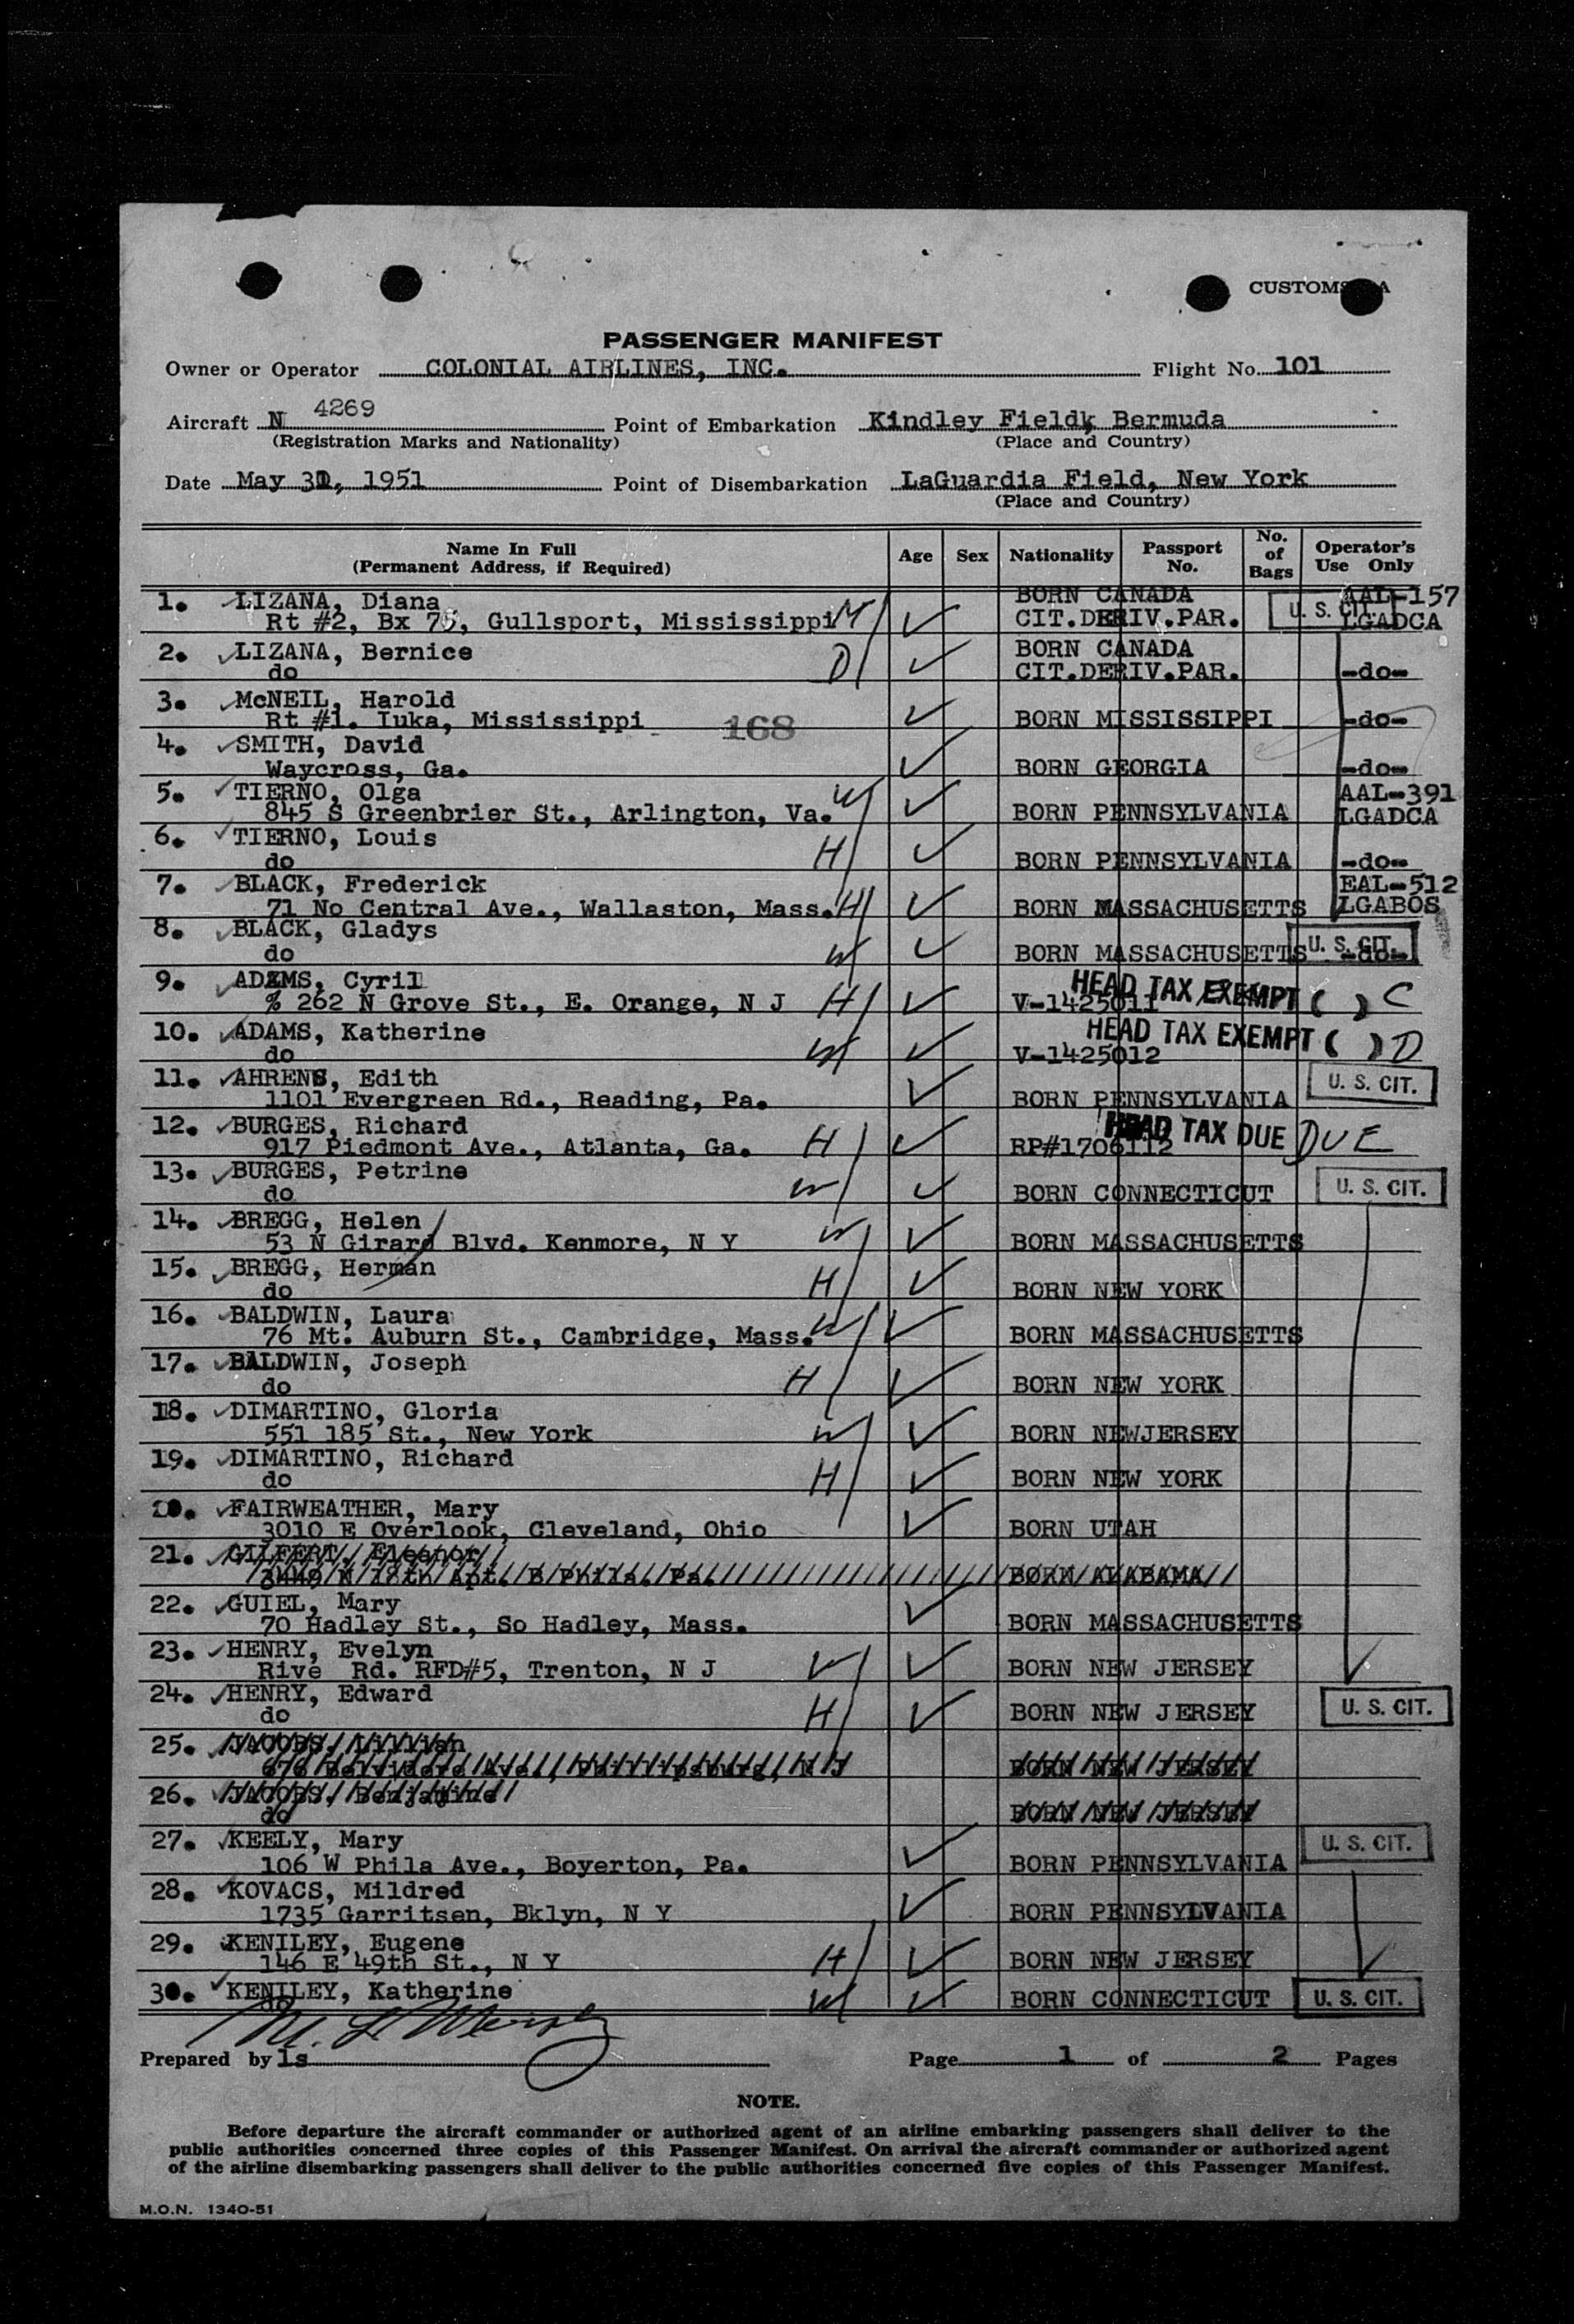 CUSTOMS
PASSENGER MANIFEST
Owner or Operator COLONIAL AIRLINES, INC. Flight No. 101
Aircraft N 4269 Point of Embarkation Kindley Field, Bermuda
(Registration Marks and Nationality) (Place and Country)
Date May 31, 1951 Point of Disembarkation LaGuardia Field, New York
(Place and Country)
Name In Full (Permanent Address, if Required) Age Sex Nationality Passport No. No. of Bags Operator's Use Only
1. LIZANA, Diana BORN CANADA AAL-157
Rt #2, Bx 75, Gullsport, Mississippi M CIT.DERIV.PAR. U. S. CIT. LGADCA
2. LIZANA, Bernice BORN CANADA
do D CIT.DERIV.PAR. -do-
3. McNEIL, Harold
Rt #1. Iuka, Mississippi 168 BORN MISSISSIPPI -do-
4. SMITH, David
Waycross, Ga. BORN GEORGIA -do-
5. TIERNO, Olga W AAL-391
845 S Greenbrier St., Arlington, Va. BORN PENNSYLVANIA LGADCA
6. TIERNO, Louis
do H BORN PENNSYLVANIA -do-
7. BLACK, Frederick EAL-512
71 No Central Ave., Wallaston, Mass. H BORN MASSACHUSETTS LGABOS
8. BLACK, Gladys
do W BORN MASSACHUSETTS U. S. CIT. -do-
9. ADAMS, Cyril HEAD TAX EXEMPT ( ) C
% 262 N Grove St., E. Orange, N J H V-1425011
10. ADAMS, Katherine HEAD TAX EXEMPT ( ) D
do W V-1425012
11. AHRENS, Edith U. S. CIT.
1101 Evergreen Rd., Reading, Pa. BORN PENNSYLVANIA
12. BURGES, Richard HEAD TAX DUE DUE
917 Piedmont Ave., Atlanta, Ga. H RP#1706112
13. BURGES, Petrine
do W BORN CONNECTICUT U. S. CIT.
14. BREGG, Helen
53 N Girard Blvd. Kenmore, N Y W BORN MASSACHUSETTS
15. BREGG, Herman
do H BORN NEW YORK
16. BALDWIN, Laura
76 Mt. Auburn St., Cambridge, Mass. W BORN MASSACHUSETTS
17. BALDWIN, Joseph
do H BORN NEW YORK
18. DIMARTINO, Gloria
551 185 St., New York W BORN NEWJERSEY
19. DIMARTINO, Richard
do H BORN NEW YORK
20. FAIRWEATHER, Mary
3010 E Overlook, Cleveland, Ohio BORN UTAH
21. GILFERT, Eleanor
3449 N 18th Apt. B Phila. Pa. BORN ALABAMA
22. GUIEL, Mary
70 Hadley St., So Hadley, Mass. BORN MASSACHUSETTS
23. HENRY, Evelyn
Rive Rd. RFD#5, Trenton, N J W BORN NEW JERSEY
24. HENRY, Edward
do H BORN NEW JERSEY U. S. CIT.
25. JACOBS, Lillian
Ave., N J BORN NEW JERSEY
26. JACOBS, Benjamine
do BORN NEW JERSEY
27. KEELY, Mary U. S. CIT.
106 W Phila Ave., Boyerton, Pa. BORN PENNSYLVANIA
28. KOVACS, Mildred
1735 Garritsen, Bklyn, N Y BORN PENNSYLVANIA
29. KENILEY, Eugene
146 E 49th St., N Y H BORN NEW JERSEY
30. KENILEY, Katherine
do W BORN CONNECTICUT U. S. CIT.
Prepared by ls Page 1 of 2 Pages
NOTE.
Before departure the aircraft commander or authorized agent of an airline embarking passengers shall deliver to the
public authorities concerned three copies of this Passenger Manifest. On arrival the aircraft commander or authorized agent
of the airline disembarking passengers shall deliver to the public authorities concerned five copies of this Passenger Manifest.
M.O.N. 1340-51